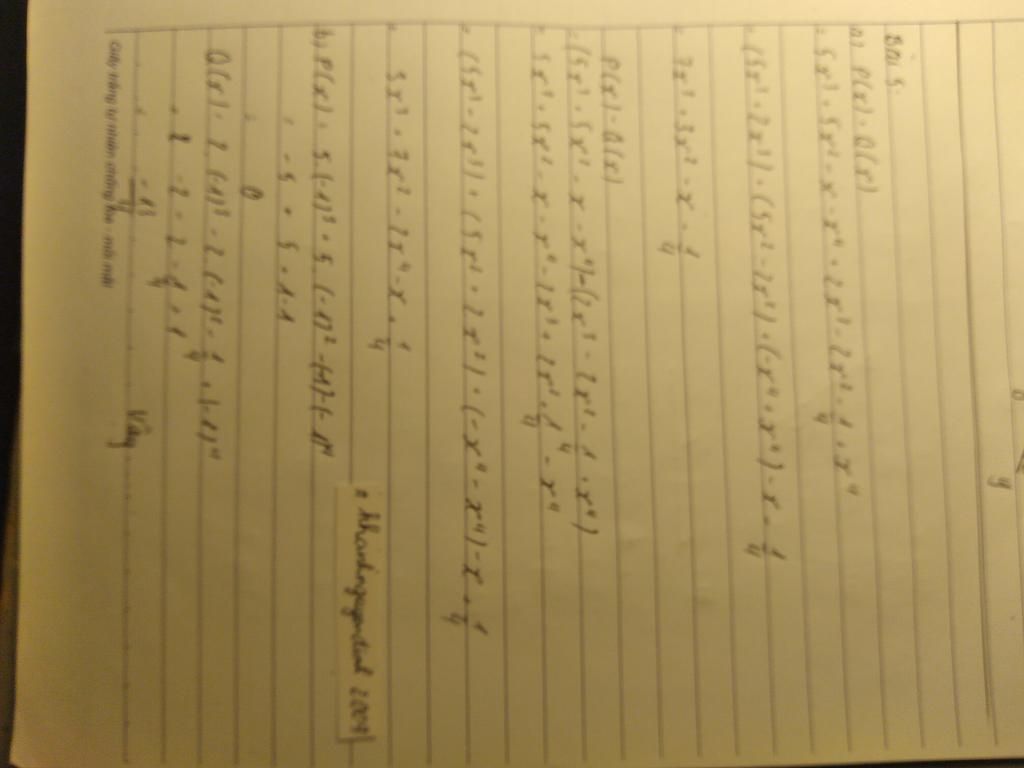 Bài 5.
a) P(x) + Q(x)
= 5x³ + 5x² - x - x⁴ + 2x³ - 2x² - 1/4 + x⁴
= (5x³ + 2x³) + (5x² - 2x²) + (-x⁴ + x⁴) - x - 1/4
= 7x³ + 3x² - x - 1/4
P(x) - Q(x)
= (5x³ + 5x² - x - x⁴) - (2x³ - 2x² - 1/4 + x⁴)
= 5x³ + 5x² - x - x⁴ - 2x³ + 2x² + 1/4 - x⁴
= (5x³ - 2x³) + (5x² + 2x²) + (-x⁴ - x⁴) - x + 1/4
= 3x³ + 7x² - 2x⁴ - x + 1/4
b) P(x) = 5.(-1)³ + 5.(-1)² - (-1) - (-1)⁴
= -5 + 5 + 1 - 1
= 0
Q(x) = 2.(-1)³ - 2.(-1)² - 1/4 + (-1)⁴
= -2 - 2 - 1/4 + 1
= -13/4
Vậy
Giấy trắng tự nhiên chống lóa - mỏi mắt